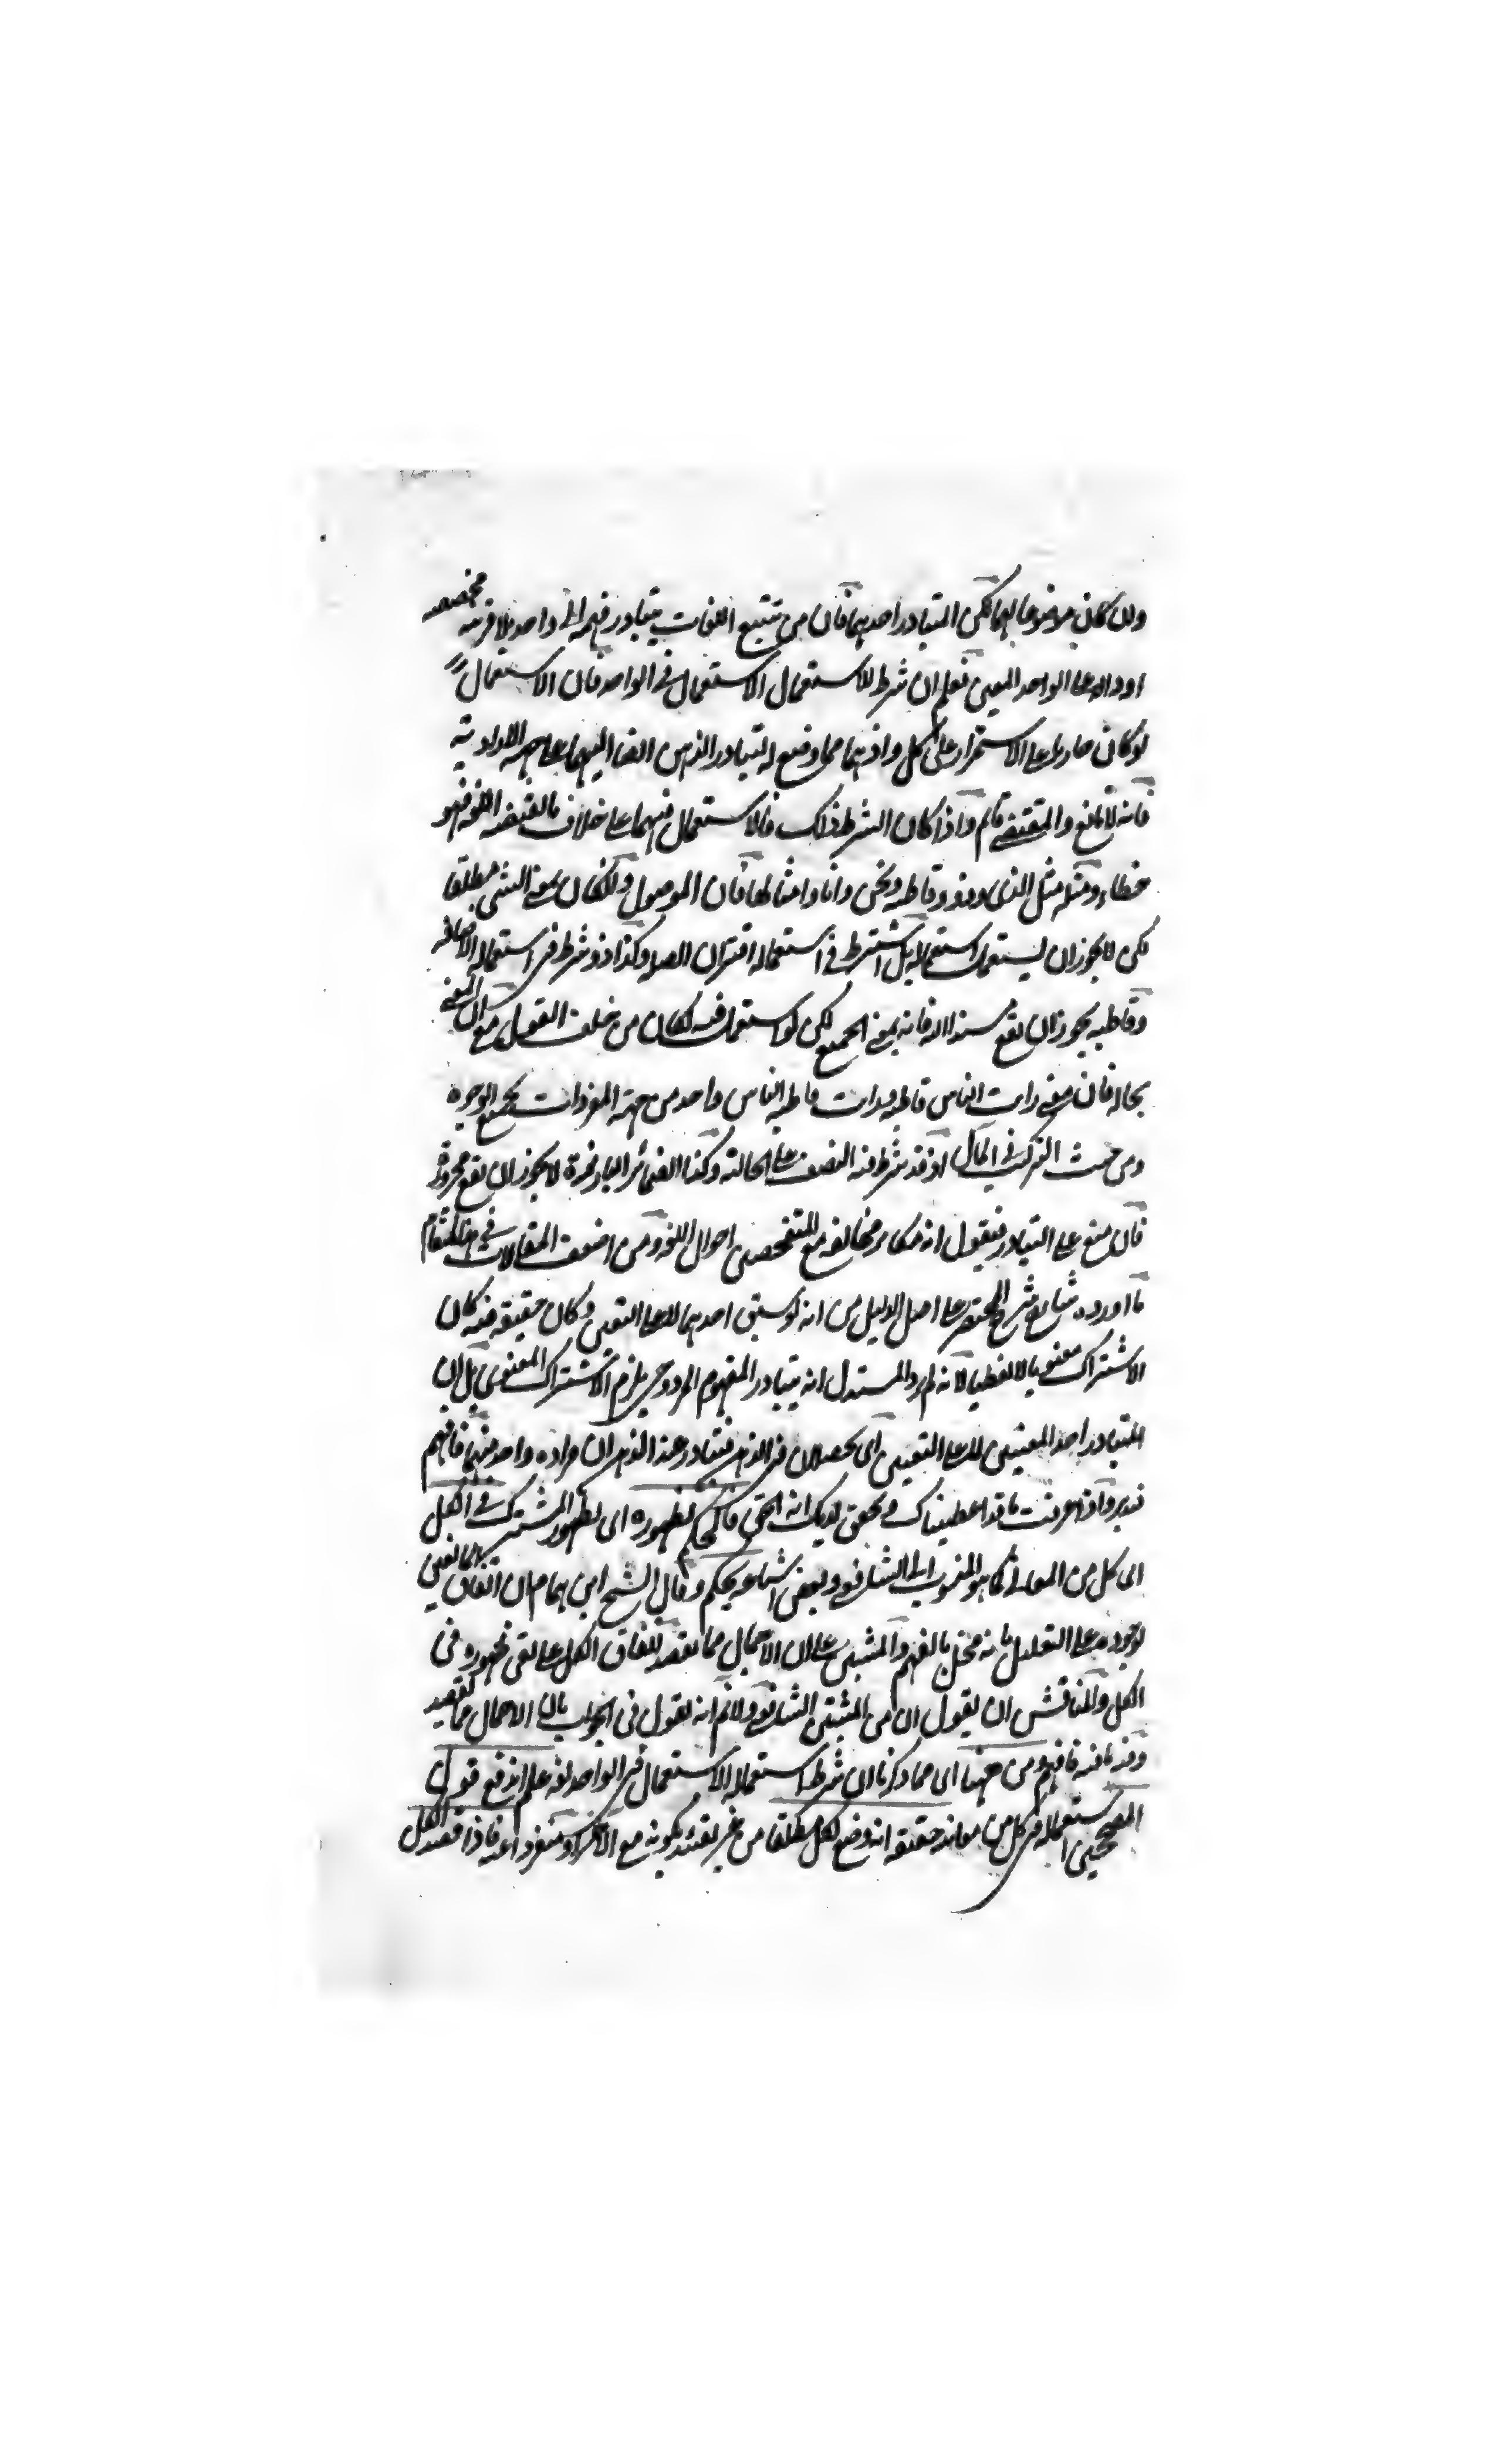 وان كان موضوعا لهما لكن المتبادر احدهما فان من تتبع اللغات يتبادر فهمه الى واحد بلا قرينة مخصصة
او دالة على الواحد المعين فعلم ان شرط الاستعمال الاستعمال في الواحد فان الاستعمال
لو كان صادرا على الاستمرار على كل واحد منهما مما وضع له لتبادر الذهن ايضا اليهما على جهة الارادة
فانه لا مانع والمقتضى قائم واذا كان الشرط ذلك فالاستعمال فيهما على خلاف ما اقتضته اللغة فهو
خطاء ومثله مثل الذي وذو وقاطبة ونحن وانا وامثالها فان الموصول ولو كان بمعنى الشيء مطلقا
لكن لا يجوز ان يستعمل استعماله بل اشترط في استعماله اقتران الصلة وكذا ذو شرط في استعماله الاضافة
وقاطبة يجوز ان يقع مسندا اليه فانه بمعنى الجميع لكن لو استعمل فيه لكان من خلف القول مع ان المعنى
بحاله فان معنى رايت الناس قاطبة ورايت قاطبة الناس واحد من جهة المفردات بجميع الوجوه
ومن حيث التركيب في المآل اذ قد شرط فيه النصب على الحالية وكذا الضمائر البارزة لا يجوز ان يقع مجرورة
فان منع على التبادر فنقول انه مكابر مخالفة مع المتفحصين احوال اللغة ومن اضعف المقالات في هذا المقام
ما اورده شارح شرح المختصر على اصل الدليل من انه لو سبق احدهما لا على التعين وكان حقيقة فيه كان
الاشتراك معنويا لا لفظيا لانه لم يرد المستدل انه يتبادر المفهوم المردد حتى يلزم الاشتراك المعنوي بل ان
المتبادر احد المعنيين لا على التعيين اى يحصلان في الذهن فيتبادر عند الذهن ان مراده واحد منهما فافهم
تدبر واذا عرفت ما قد اعطيناك وتحقق لديك انه الحق فالحكم بظهوره اى بظهور المشترك في الكل
اى كل من المعاني كما هو المنسوب الى الشافعي وبعض اشياعه تحكم وقال الشيخ ابن همام ان اتفاق المانعين
لوجوده على التعليل بانه مخل بالفهم والمثبتين على ان الاجمال مما يقصد اتفاق الكل على نفي ظهوره في
الكل والمناقش ان يقول ان من المثبتين الشافعي ولا نم انه يقول في الجواب بان الاجمال مما يقصد
وفيه ما فيه فافهم ومن ههنا اى مما ذكرنا ان شرط استعماله الاستعمال في الواحد لغة علم اندفع قول
المصححين استعماله في كل من معانيه حقيقة انه وضع لكل مطلقا من غير تقييد بكونه مع الآخر او منفردا عنه فاذا قصد الكل